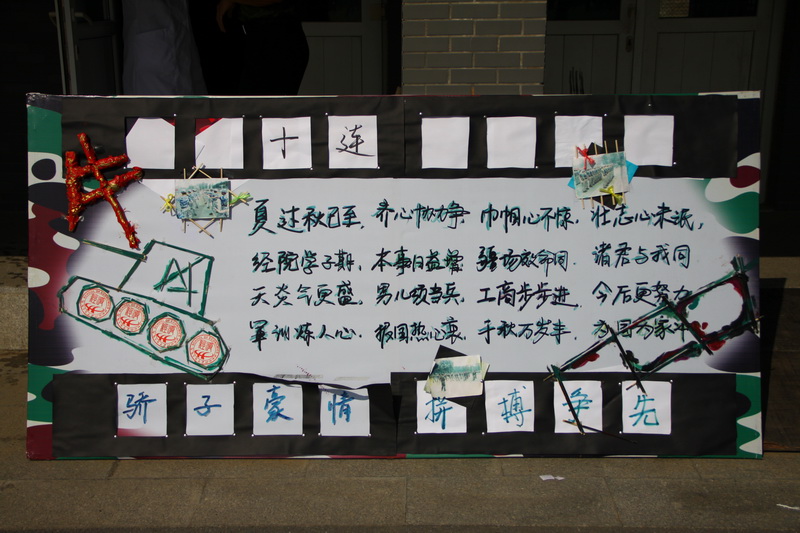 十连
夏过秋已至,齐心协力争,巾帼心不惊,壮志心未泯,
经院学子期,本事日益增,疆场放命同,诸君与我同
天炎气更盛,男儿 当兵,工商步步进,今后更努力
军训炼人心,报国热心衷,千秋万岁丰,为国为家
骄子豪情 拼搏争先